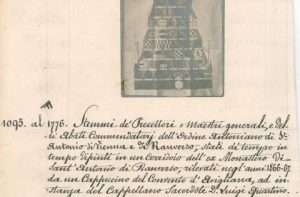 1095. al 1776. Stemmi de' Precettori e Maestri generali, e del-
li Abati Commendatarj dell'Ordine Antoniano di St
Antonio di Vienna e di Ranverso, stati di tempo in
tempo dipinti in un corridoio dell'ex Monastero di
Sant'Antonio di Ranverso, ritovati negli anni 1866-67
da un Cappuccino del Convento d'Avigliana, ad in-
stanza del Cappellano Sacerdote D. Luigi